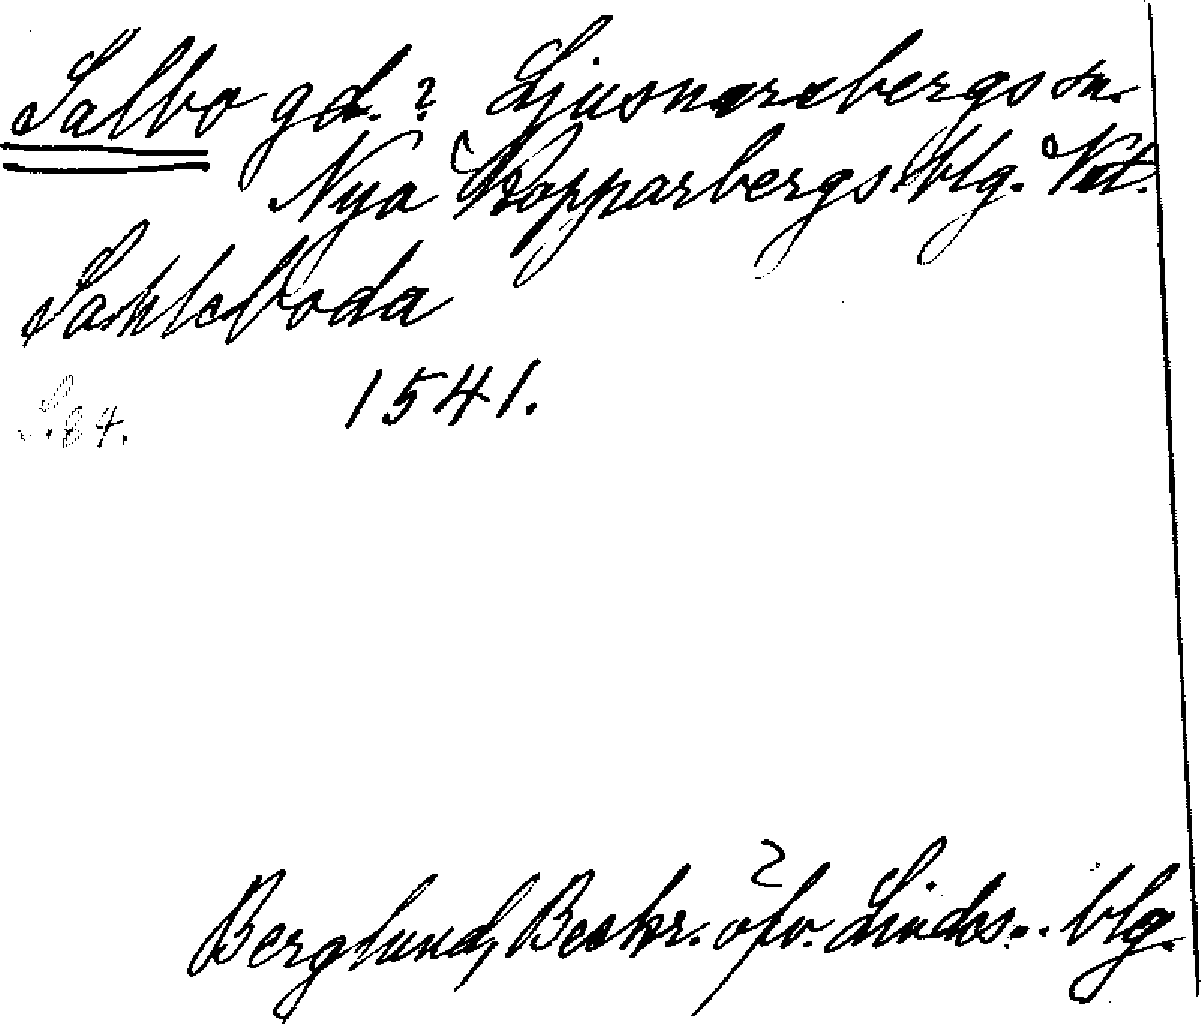 Salbo gd.? Ljusnarsbergs sn.
Nya Kopparbergs blg. Vst.
Sahleboda
1541.
S. 84.
Berglund, Beskr. öfv. Lindes.. blg.